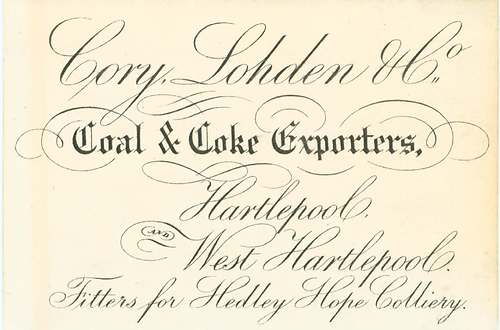 Cory, Lohden & Co.
Coal & Coke Exporters,
Hartlepool.
AND
West Hartlepool.
Fitters for Hedley Hope Colliery.